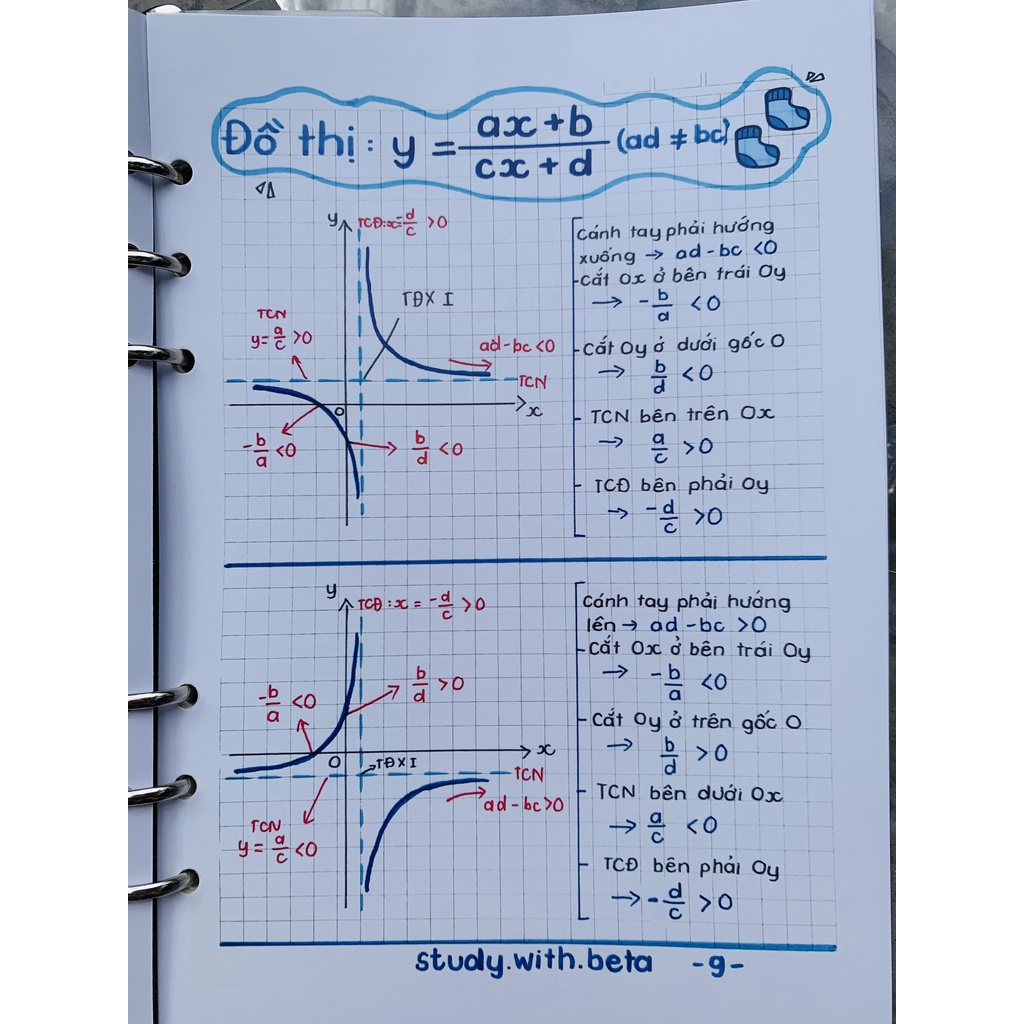 Đồ thị: y = (ax + b)/(cx + d) (ad ≠ bc)
y
TCĐ: x = -d/c > 0
TĐX I
TCN
y = a/c > 0
ad - bc < 0
TCN
O
x
-b/a < 0
b/d < 0
Cánh tay phải hướng
xuống → ad - bc < 0
- Cắt Ox ở bên trái Oy
→ -b/a < 0
- Cắt Oy ở dưới gốc O
→ b/d < 0
- TCN bên trên Ox
→ a/c > 0
- TCĐ bên phải Oy
→ -d/c > 0
y
TCĐ: x = -d/c > 0
b/d > 0
-b/a < 0
x
O
TĐX I
TCN
ad - bc > 0
TCN
y = a/c < 0
Cánh tay phải hướng
lên → ad - bc > 0
- Cắt Ox ở bên trái Oy
→ -b/a < 0
- Cắt Oy ở trên gốc O
→ b/d > 0
- TCN bên dưới Ox
→ a/c < 0
- TCĐ bên phải Oy
→ -d/c > 0
study.with.beta -9-